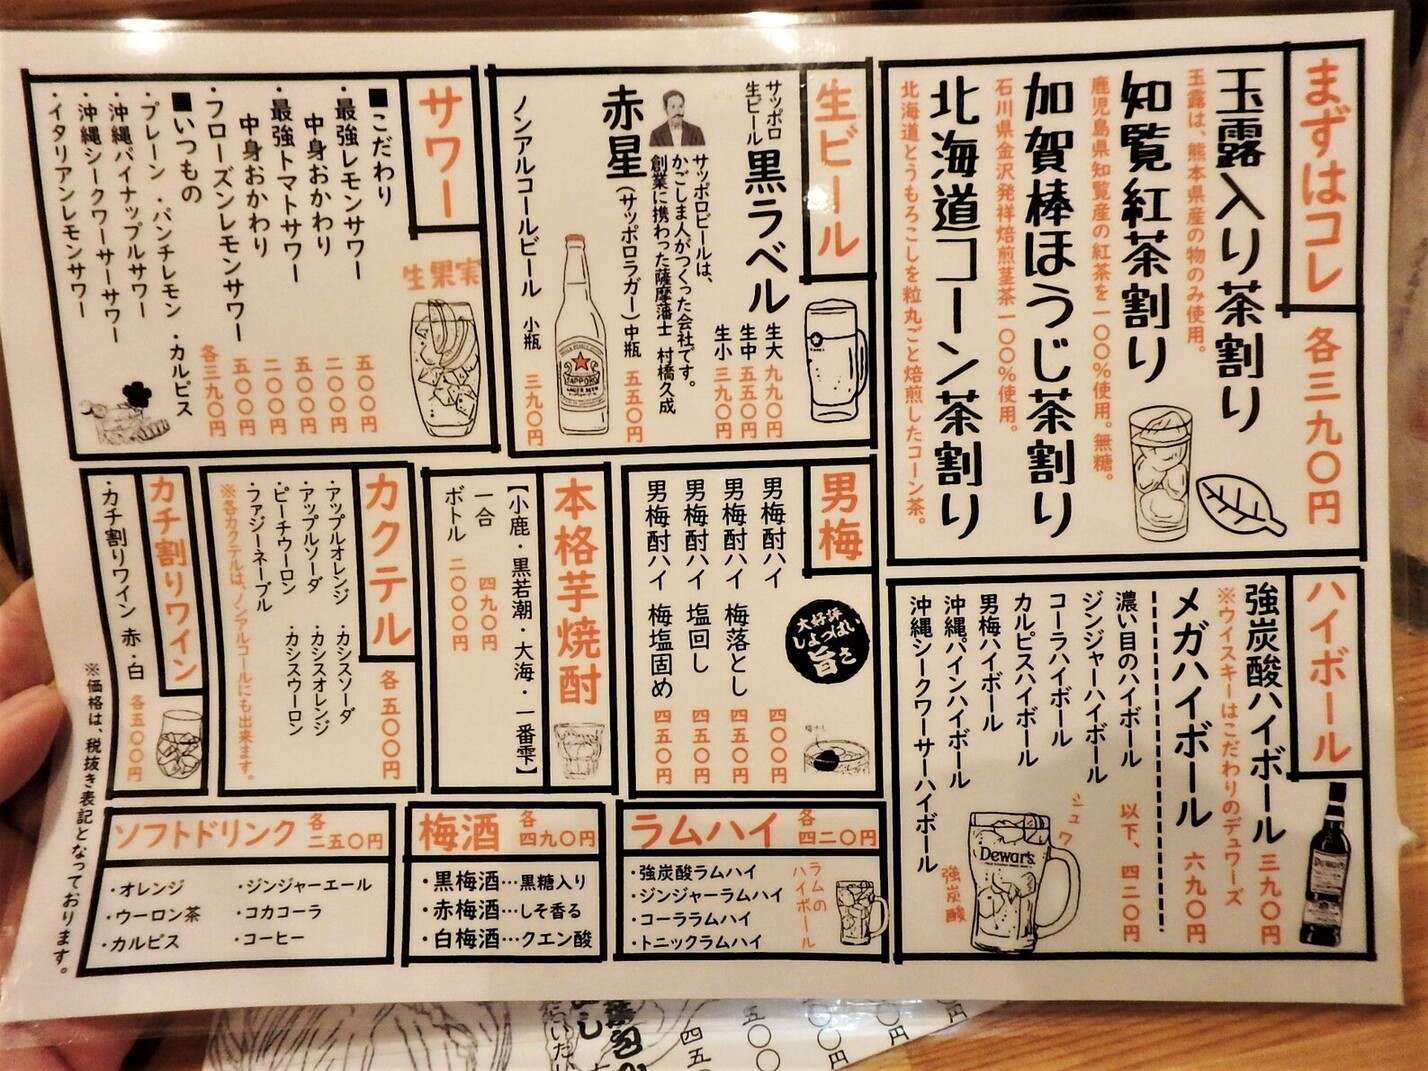 まずはコレ 各三九〇円
玉露入り茶割り
玉露は、熊本県産の物のみ使用。
知覧紅茶割り
鹿児島県知覧産の紅茶を一〇〇%使用。無糖。
加賀棒ほうじ茶割り
石川県金沢発祥焙煎茎茶一〇〇%使用。
北海道コーン茶割り
北海道とうもろこしを粒丸ごと焙煎したコーン茶。
生ビール
サッポロ
生ビール
黒ラベル
生大 九九〇円
生中 五五〇円
生小 三九〇円
サッポロビールは、
かごしま人がつくった会社です。
創業に携わった薩摩藩士 村橋久成
赤星(サッポロラガー)中瓶 五五〇円
SAPPORO
LAGER BEER
ノンアルコールビール 小瓶 三九〇円
サワー
生果実
■こだわり
・最強レモンサワー 五〇〇円
中身おかわり 二〇〇円
・最強トマトサワー 五〇〇円
中身おかわり 二〇〇円
・フローズンレモンサワー 五〇〇円
■いつもの 各三九〇円
・プレーン ・パンチレモン ・カルピス
・沖縄パイナップルサワー
・沖縄シークワーサーサワー
・イタリアンレモンサワー
ハイボール
強炭酸ハイボール 三九〇円
※ウイスキーはこだわりのデュワーズ
メガハイボール 六九〇円
濃い目のハイボール 以下、四二〇円
ジンジャーハイボール
コーラハイボール
カルピスハイボール
男梅ハイボール
沖縄パインハイボール
沖縄シークワーサーハイボール
シュワ
強炭酸
Dewar's
男梅
男梅酎ハイ 四〇〇円
男梅酎ハイ 梅落とし 四五〇円
男梅酎ハイ 塩回し 四五〇円
男梅酎ハイ 梅塩固め 四五〇円
大好評
しょっぱい
旨さ
本格芋焼酎
【小鹿・黒若潮・大海・一番雫】
一合 四九〇円
ボトル 二〇〇〇円
カクテル 各五〇〇円
・アップルオレンジ ・カシスソーダ
・アップルソーダ ・カシスオレンジ
・ピーチウーロン ・カシスウーロン
・ファジーネーブル
※各カクテルは、ノンアルコールにも出来ます。
カチ割りワイン
・カチ割りワイン 赤・白 各五〇〇円
ラムハイ 各四二〇円
・強炭酸ラムハイ
・ジンジャーラムハイ
・コーララムハイ
・トニックラムハイ
ラムの
ハイボール
梅酒 各四九〇円
・黒梅酒…黒糖入り
・赤梅酒…しそ香る
・白梅酒…クエン酸
ソフトドリンク 各二五〇円
・オレンジ ・ジンジャーエール
・ウーロン茶 ・コカコーラ
・カルピス ・コーヒー
※価格は、税抜き表記となっております。